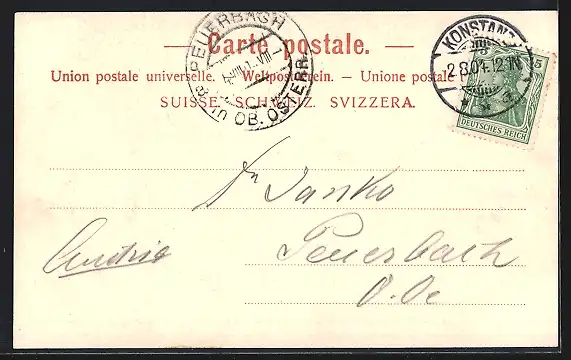 — Carte postale. —
Union postale universelle. — Weltpostverein. — Unione postale
SUISSE. SCHWEIZ. SVIZZERA.
PEUERBACH
OB. ÖSTERR.
KONSTANZ
2 8.04. 12-1N
5
DEUTSCHES REICH
Dr Janko
Peuerbach
O. Oe
Austria